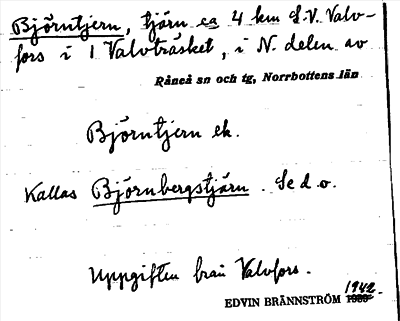 Björntjern, tjärn ca 4 km S.V. Valv-
fors i 1 Valvträsket, i N. delen av
Råneå sn och tg, Norrbottens län
Björntjern ek.
Kallas Björnbergstjärn. Se d.o.
Uppgiften från Valvfors.
EDVIN BRÄNNSTRÖM 1942.